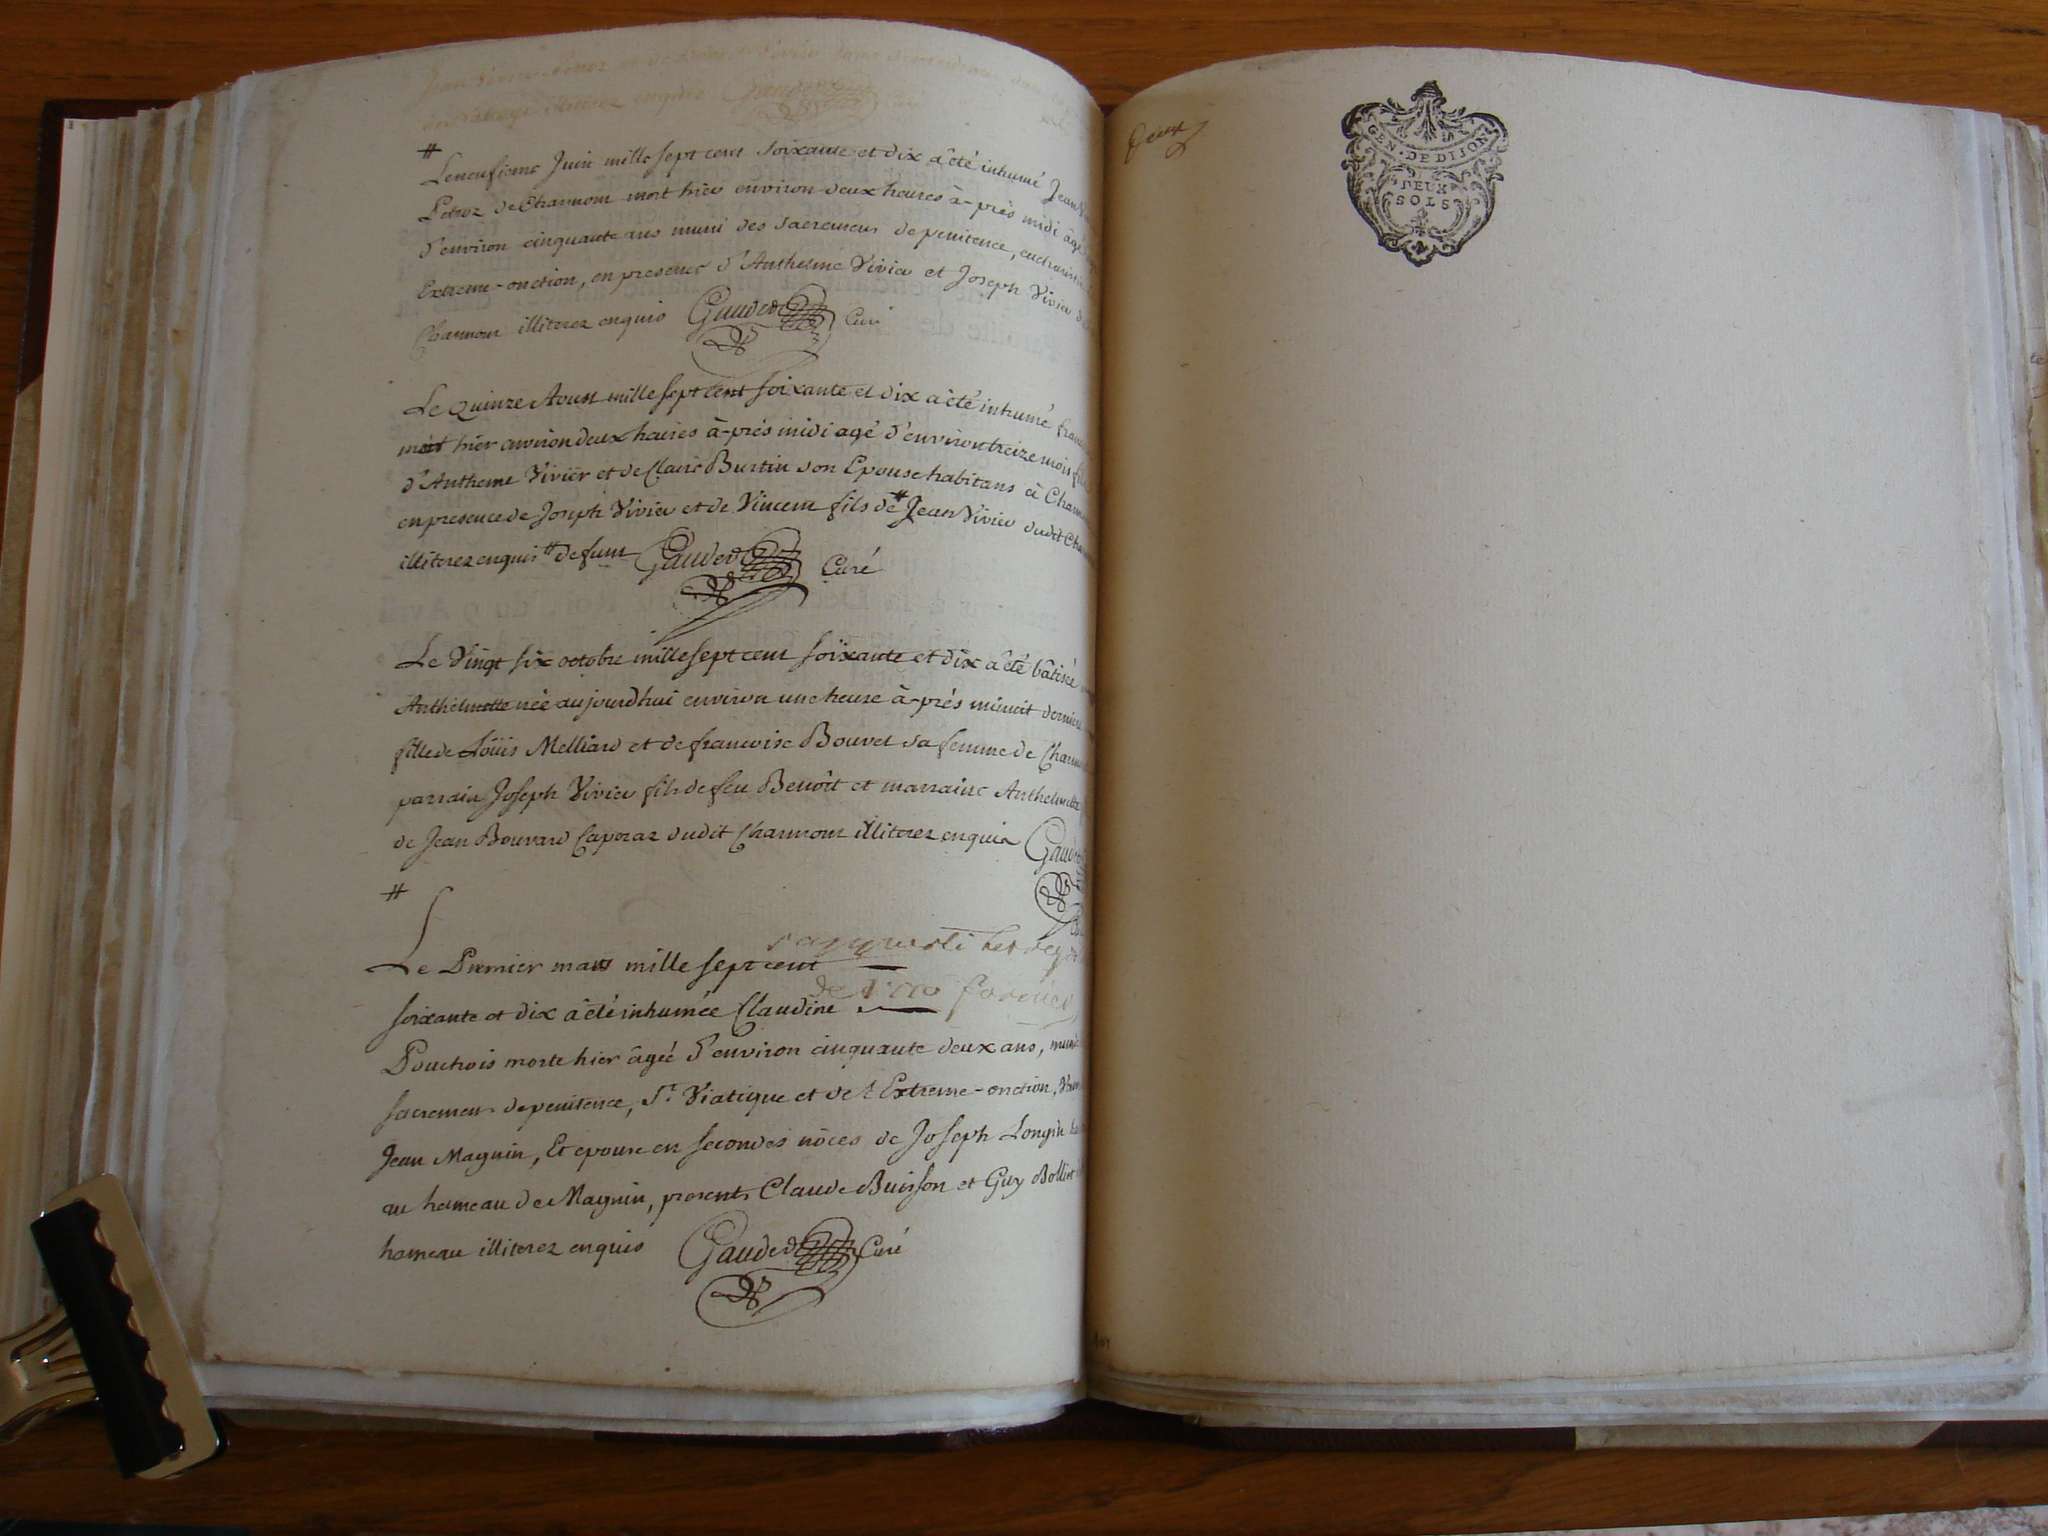 Le neufieme Juin mille sept cent soixante et dix a été inhumé Jean
Petroz de Charmont mort hier environ deux heures à-près midi âgé
d'environ cinquante ans muni des sacremens de penitence,
Extreme-onction, en presence d'Anthelme Vivier et Joseph Vivier
Charmont illiterez enquis Gaudet Curé
Le Quinze Aoust mille sept cent soixante et dix a été inhumé
mort hier environ deux heures à-près midi agé d'environ treize mois fils
d'Anthelme Vivier et de Claire Burtin son Epouse habitans à
en presence de Joseph Vivier et de Vincent fils de # Jean Vivier dudit
illiterez enquis # defunt Gaudet Curé
Le Vingt six octobre mille sept cent soixante et dix a été bâtisée
Anthelmette née aujourdhui environ une heure à-près minuit dernier
fille de Loüis Melliard et de francoise Bouvet sa femme de
parrain Joseph Vivier fils de feu Benoît et marraine Anthelmette
de Jean Bouvard Caporaz dudit Charmont illiterez enquis
#
Le Premier mars mille sept cent
de 1770
soixante et dix a été inhumée Claudine
morte hier âgée d'environ cinquante deux ans,
sacremens de penitence, St. Viatique et de l'Extreme-onction,
Jean Magnin, Et epouse en secondes nôces de Joseph Longin
au hameau de Magnin, presents Claude Buisson et Guy Bolliet
hameau illiterez enquis Gaudet Curé
GEN. DE DIJON
DEUX
SOLS